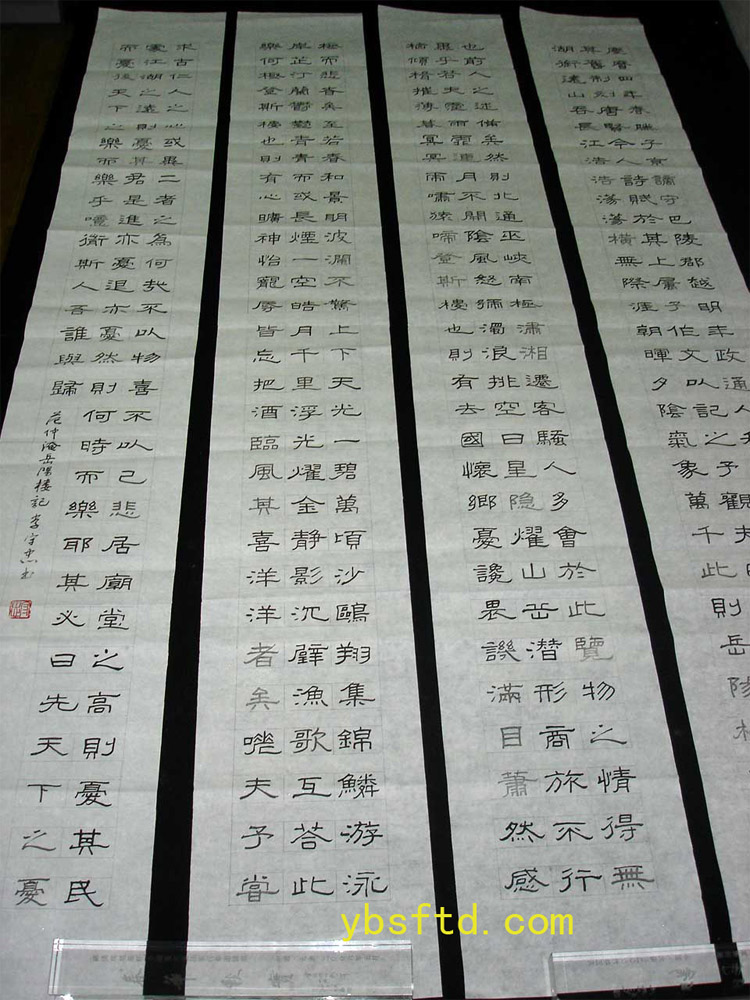 慶曆四年春滕子京謫守巴陵郡越明年政通
其舊制刻唐賢今人詩賦於其上屬予作文以記之予觀夫
湖銜遠山吞長江浩浩蕩蕩橫無際涯朝暉夕陰氣象萬千此則岳陽樓
也前人之述備矣然則北通巫峽南極瀟湘遷客騷人多會於此覽物之情得無
異乎若夫霪雨霏連月不開陰風怒號濁浪排空日星隱耀山岳潛形商旅不行
檣傾楫摧薄暮冥冥雨嘯猿啼登斯樓也則有去國懷鄉憂讒畏譏滿目蕭然感
極而悲者矣至若春和景明波瀾不驚上下天光一碧萬頃沙鷗翔集錦鱗游泳
岸芷汀蘭鬱鬱青青而或長煙一空皓月千里浮光耀金靜影沉璧漁歌互答此
樂何極登斯樓也則有心曠神怡寵辱皆忘把酒臨風其喜洋洋者矣嗟夫予嘗
求古仁人之心或異二者之為何哉不以物喜不以己悲居廟堂之高則憂其民
處江湖之遠則憂其君是進亦憂退亦憂然則何時而樂耶其必曰先天下之憂
而憂後天下之樂而樂乎噫微斯人吾誰與歸
范仲淹岳陽樓記
ybsftd.com